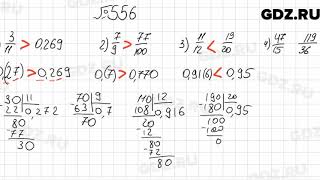 №556
GDZ.RU
1) 3/11 > 0,269 2) 7/9 > 77/100 3) 11/12 < 19/20 4) 47/15 119/36
0,(27) > 0,269 0,(7) > 0,770 0,91(6) < 0,95
30 | 11 70 | 9 110 | 12 190 | 20
-22 0,272 63 0,7 108 0,916 -180 0,95
80 70 -20 100
-77 12 -100
30 -80 0
72
80
GDZ.RU